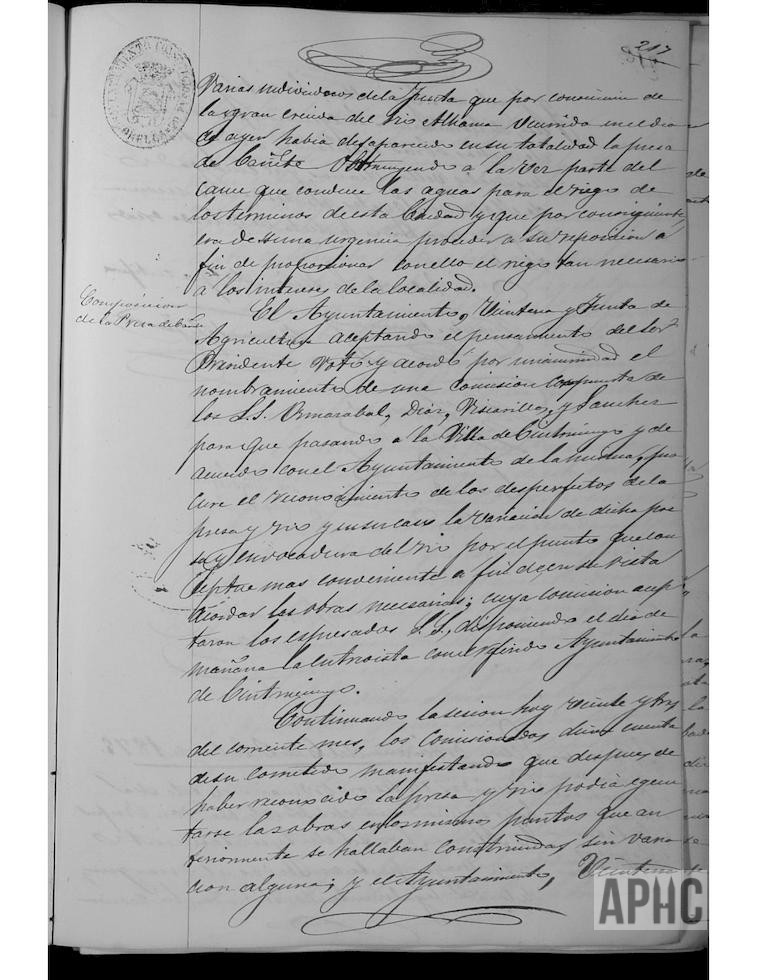 217
Varios individuos de la Junta que por consecuencia de
la gran crecida del rio Alhama ocurrida en el dia
de ayer habia desaparecido en su totalidad la presa
de Cañete obstruyendo a la vez parte del
cauce que conduce las aguas para el riego de
los terminos de esta Ciudad y que por consiguiente
era de suma urgencia proceder a su reposicion a
fin de proporcionar con ello el riego tan necesario
a los intereses de la localidad.
Composicion
de la Presa de Cañete
El Ayuntamiento, Veintena y Junta de
Agricultura aceptando el pensamiento del Señor
Presidente votó y acordó por unanimidad el
nombramiento de una comision compuesta de
los S.S. Díaz, y Sanchez
para que pasando a la Villa de Cintruenigo y de
acuerdo con el Ayuntamiento de la misma, pro
cure el reconocimiento de los desperfectos de la
presa y rio y en su caso la variacion de dicha pre
sa y envocadura del rio por el punto que con
ceptue mas conveniente a fin de en su vista
acordar las obras necesarias; cuya comision acep
taron los espresados S.S., disponiendo el dia de
mañana la entrevista con el referido Ayuntamiento
de Cintruenigo.
Continuando la sesion hoy veinte y tres
del corriente mes, los comisionados dieron cuenta
de su cometido manifestando que despues de
haber reconocido la presa y rio podia ejecu
tarse las obras en los mismos puntos que an
teriormente se hallaban construidas sin varia
cion alguna; y el Ayuntamiento, Veintena
APHC